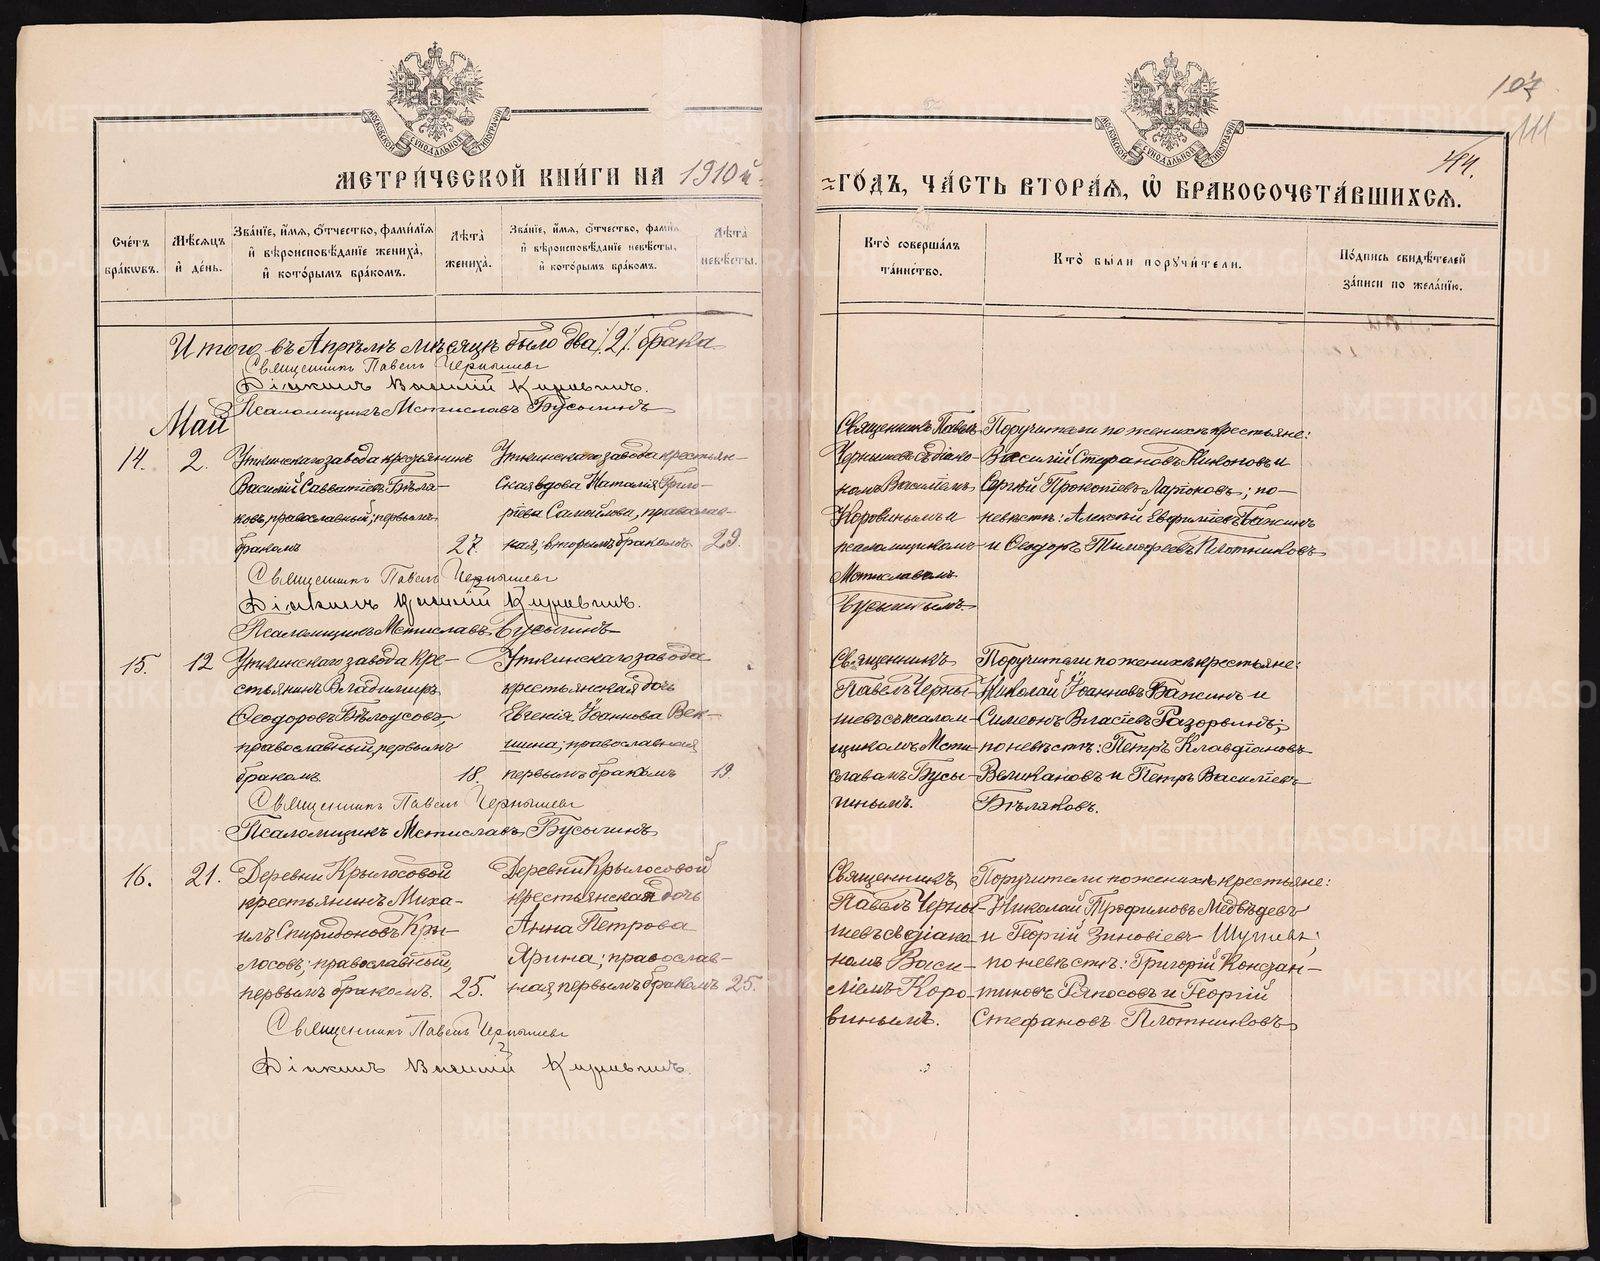 107
111
44.
МОСКОВСКОЙ СѴНОДАЛЬНОЙ ТИПОГРАФІИ
МОСКОВСКОЙ СѴНОДАЛЬНОЙ ТИПОГРАФІИ
МЕТРИ́ЧЕСКОЙ КНИ́ГИ НА 1910й
ГО́ДЪ, ЧА́СТЬ ВТОРА́Я, Ѡ БРАКОСОЧЕТА́ВШИХСЯ.
Сче́тъ бра́кѡвъ.
Мѣ́сяцъ и҆ де́нь.
Зва́нїе, и҆́мя, ѻ҆́тчество, фами́лїя и҆ вѣроисповѣ́данїе жениха̀, и҆ кото́рымъ бра́комъ.
Лѣта̀ жениха̀.
Зва́нїе, и҆́мя, ѻ҆́тчество, фами́лїя и҆ вѣроисповѣ́данїе невѣ́сты, и҆ кото́рымъ бра́комъ.
Лѣта̀ невѣ́сты.
Кто̀ соверша́лъ та́инство.
Кто̀ бы́ли порꙋчи́тели.
По́дпись свидѣ́телей за́писи по жела́нїю.
Итого въ Апрѣлѣ мѣсяцѣ было два /2/ брака
Священникъ Павелъ Чернышевъ
Діаконъ Василій Коровинъ.
Псаломщикъ Мстиславъ Бусыгинъ
Май
14.
2.
Уткинскаго завода крестьянинъ
Василій Савватіевъ Бѣля-
ковъ, православный; первымъ
бракомъ
27.
Уткинскаго завода крестьян-
ская вдова Наталія Григо-
рьева Самойлова, православ-
ная, вторымъ бракомъ
29.
Священникъ Павелъ
Чернышевъ съ діако-
номъ Василіемъ
Коровинымъ и
псаломщикомъ
Мстиславомъ
Бусыгинымъ
Поручители по женихѣ крестьяне:
Василій Стефановъ Никоновъ и
Сергѣй Прокопіевъ Ларіоновъ; по-
невѣстѣ: Алексѣй Евфиміевъ Бажинъ
и Ѳеодоръ Тимофеевъ Плотниковъ
Священникъ Павелъ Чернышевъ
Діаконъ Василій Коровинъ.
Псаломщикъ Мстиславъ Бусыгинъ
15.
12
Уткинскаго завода кре-
стьянинъ Владимиръ
Ѳеодоровъ Бѣлоусовъ,
православный, первымъ
бракомъ
18.
Уткинскаго завода
крестьянская дочь
Евгенія Іоаннова Век-
шина; православная
первымъ бракомъ
19.
Священникъ
Павелъ Черны-
шевъ съ псалом-
щикомъ Мсти-
славомъ Бусы-
гинымъ.
Поручители по женихѣ крестьяне:
Николай Іоанновъ Бажинъ и
Симеонъ Власіевъ Разорвинъ;
по невѣстѣ: Петръ Клавдіановъ
Великановъ и Петръ Василіевъ
Бѣляковъ.
Священникъ Павелъ Чернышевъ
Псаломщикъ Мстиславъ Бусыгинъ
16.
21.
Деревни Крылосовой
крестьянинъ Миха-
илъ Спиридоновъ Кры-
лосовъ; православный,
первымъ бракомъ.
25.
Деревни Крылосовой
крестьянская дочь
Анна Петрова
Ярина; православ-
ная, первымъ бракомъ
25.
Священникъ
Павелъ Черны-
шевъ съ діако-
номъ Васи-
ліемъ Коро-
винымъ.
Поручители по женихѣ крестьяне:
Николай Трофимовъ Медвѣдевъ
и Георгій Зиновіевъ
по невѣстѣ: Григорій Констан-
тиновъ Ряпосовъ и Георгій
Стефановъ Плотниковъ
Священникъ Павелъ Чернышевъ
Діаконъ Василій Коровинъ.
METRIKI.GASO-URAL.RU